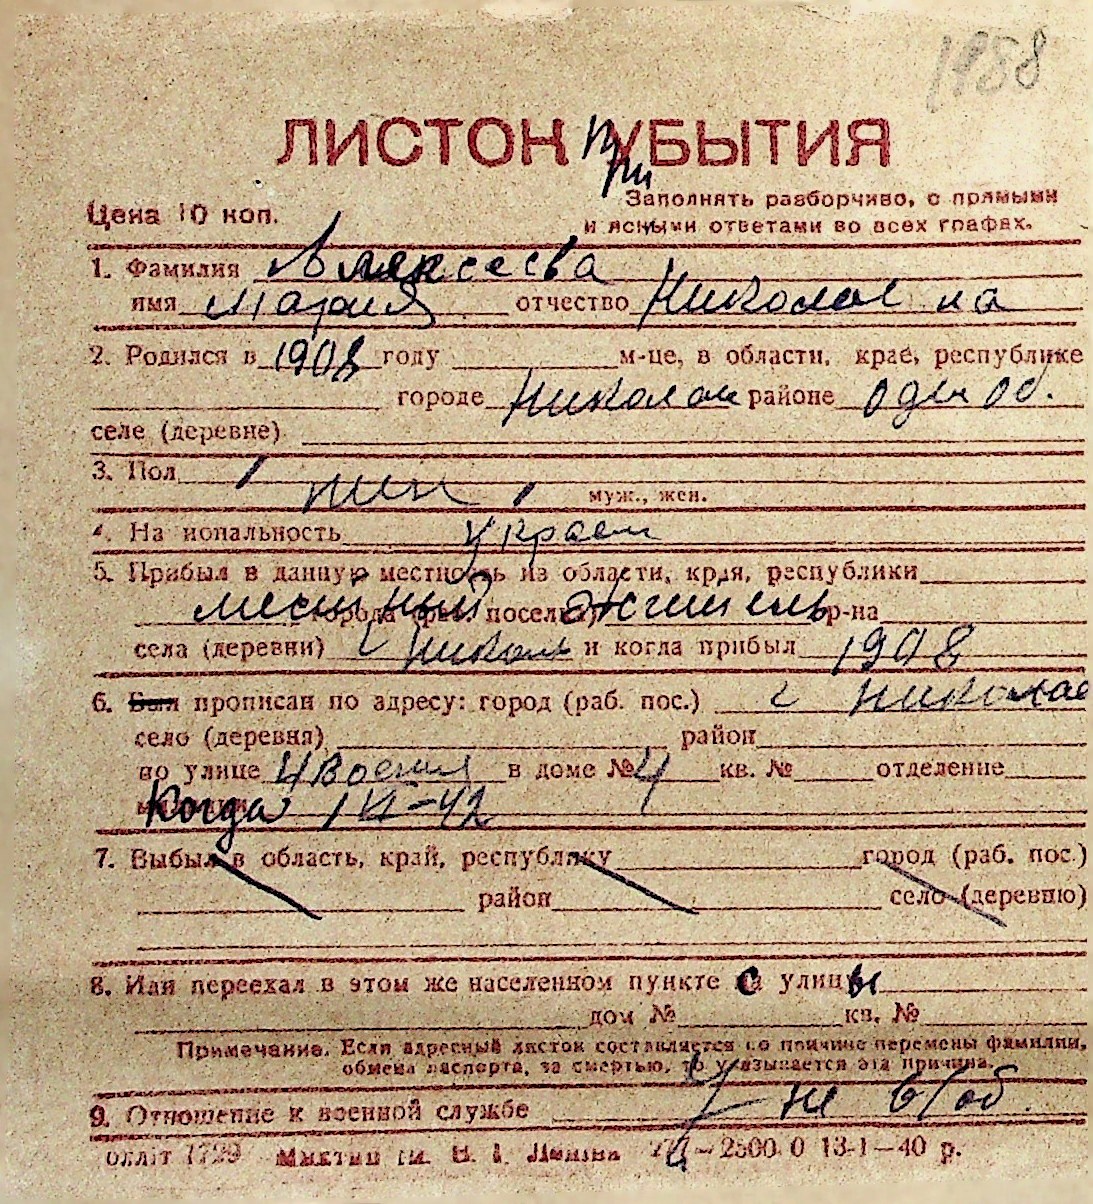 1958
ЛИСТОК УБЫТИЯ
при
Цена 10 коп.
Заполнять разборчиво, с прямыми
и ясными ответами во всех графах.
1. Фамилия Алексеева
имя Мария отчество Николаевна
2. Родился в 1908 году м-це, в области, крае, республике
городе Николаи районе Одес об.
селе (деревне)
3. Пол жен муж., жен.
4. Национальность Украин
5. Прибыл в данную местность из области, края, республики
местный житель
города (раб. поселка) р-на
села (деревни) г Никол и когда прибыл 1908
6. Был прописан по адресу: город (раб. пос.) г Николае
село (деревня) район
по улице 4 Военная в доме № 4 кв. № отделение
милиции
Когда 1 VI-42
7. Выбыл в область, край, республику город (раб. пос.)
район село (деревню)
8. Или переехал в этом же населенном пункте с улицы
дом № кв. №
Примечание. Если адресный листок составляется по причине перемены фамилии,
обмена паспорта, за смертью, то указывается эта причина.
9. Отношение к военной службе не в/об.
облліт 1729 2500 0 13-1-40 р.